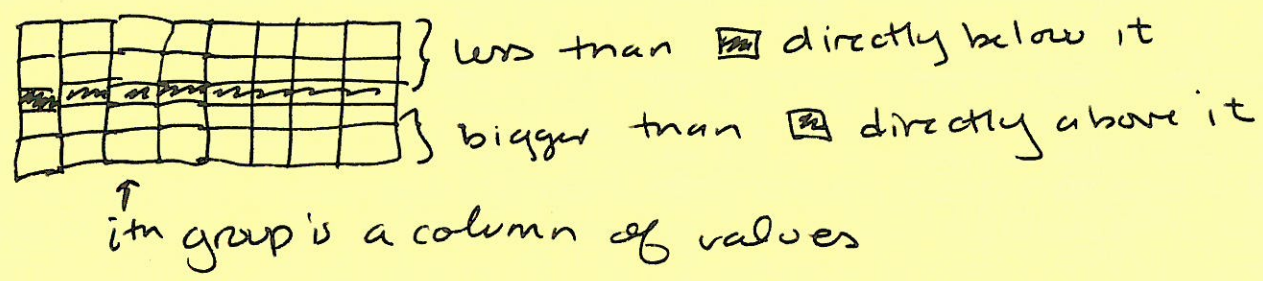 less than directly below it
bigger than directly above it
ith group is a column of values